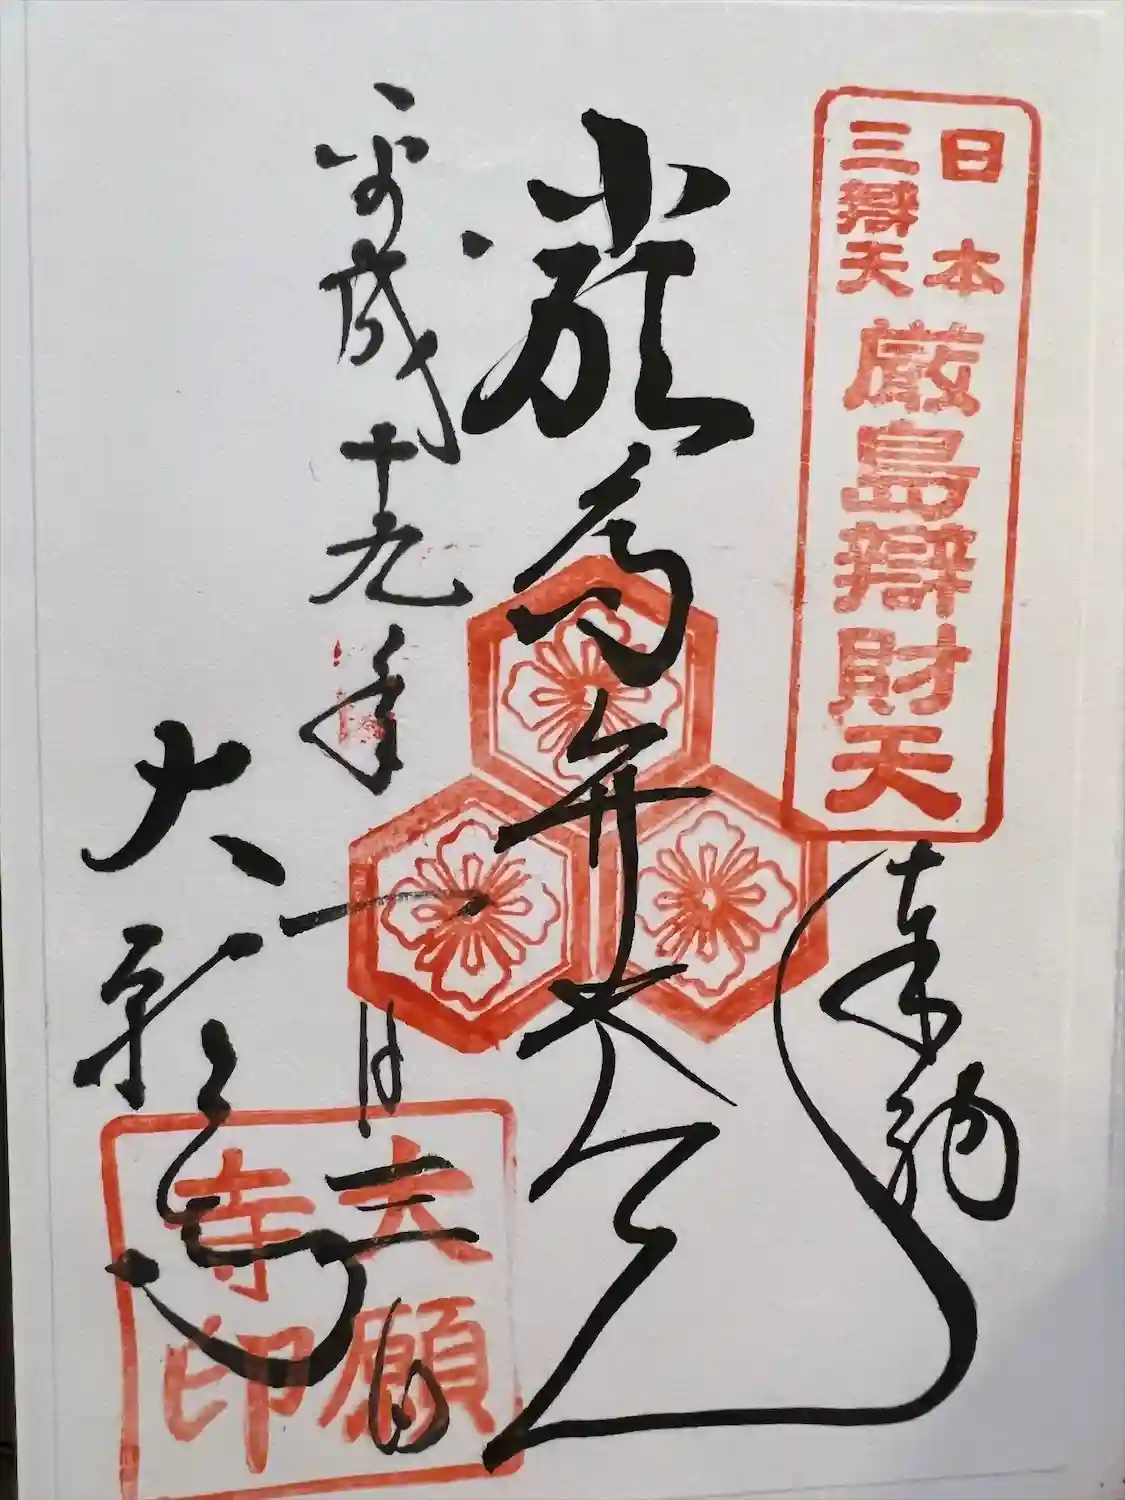 日本
三辯天
厳島辯財天
奉納
厳島弁才天
平成十九年十月三日
大願寺
大願
寺印